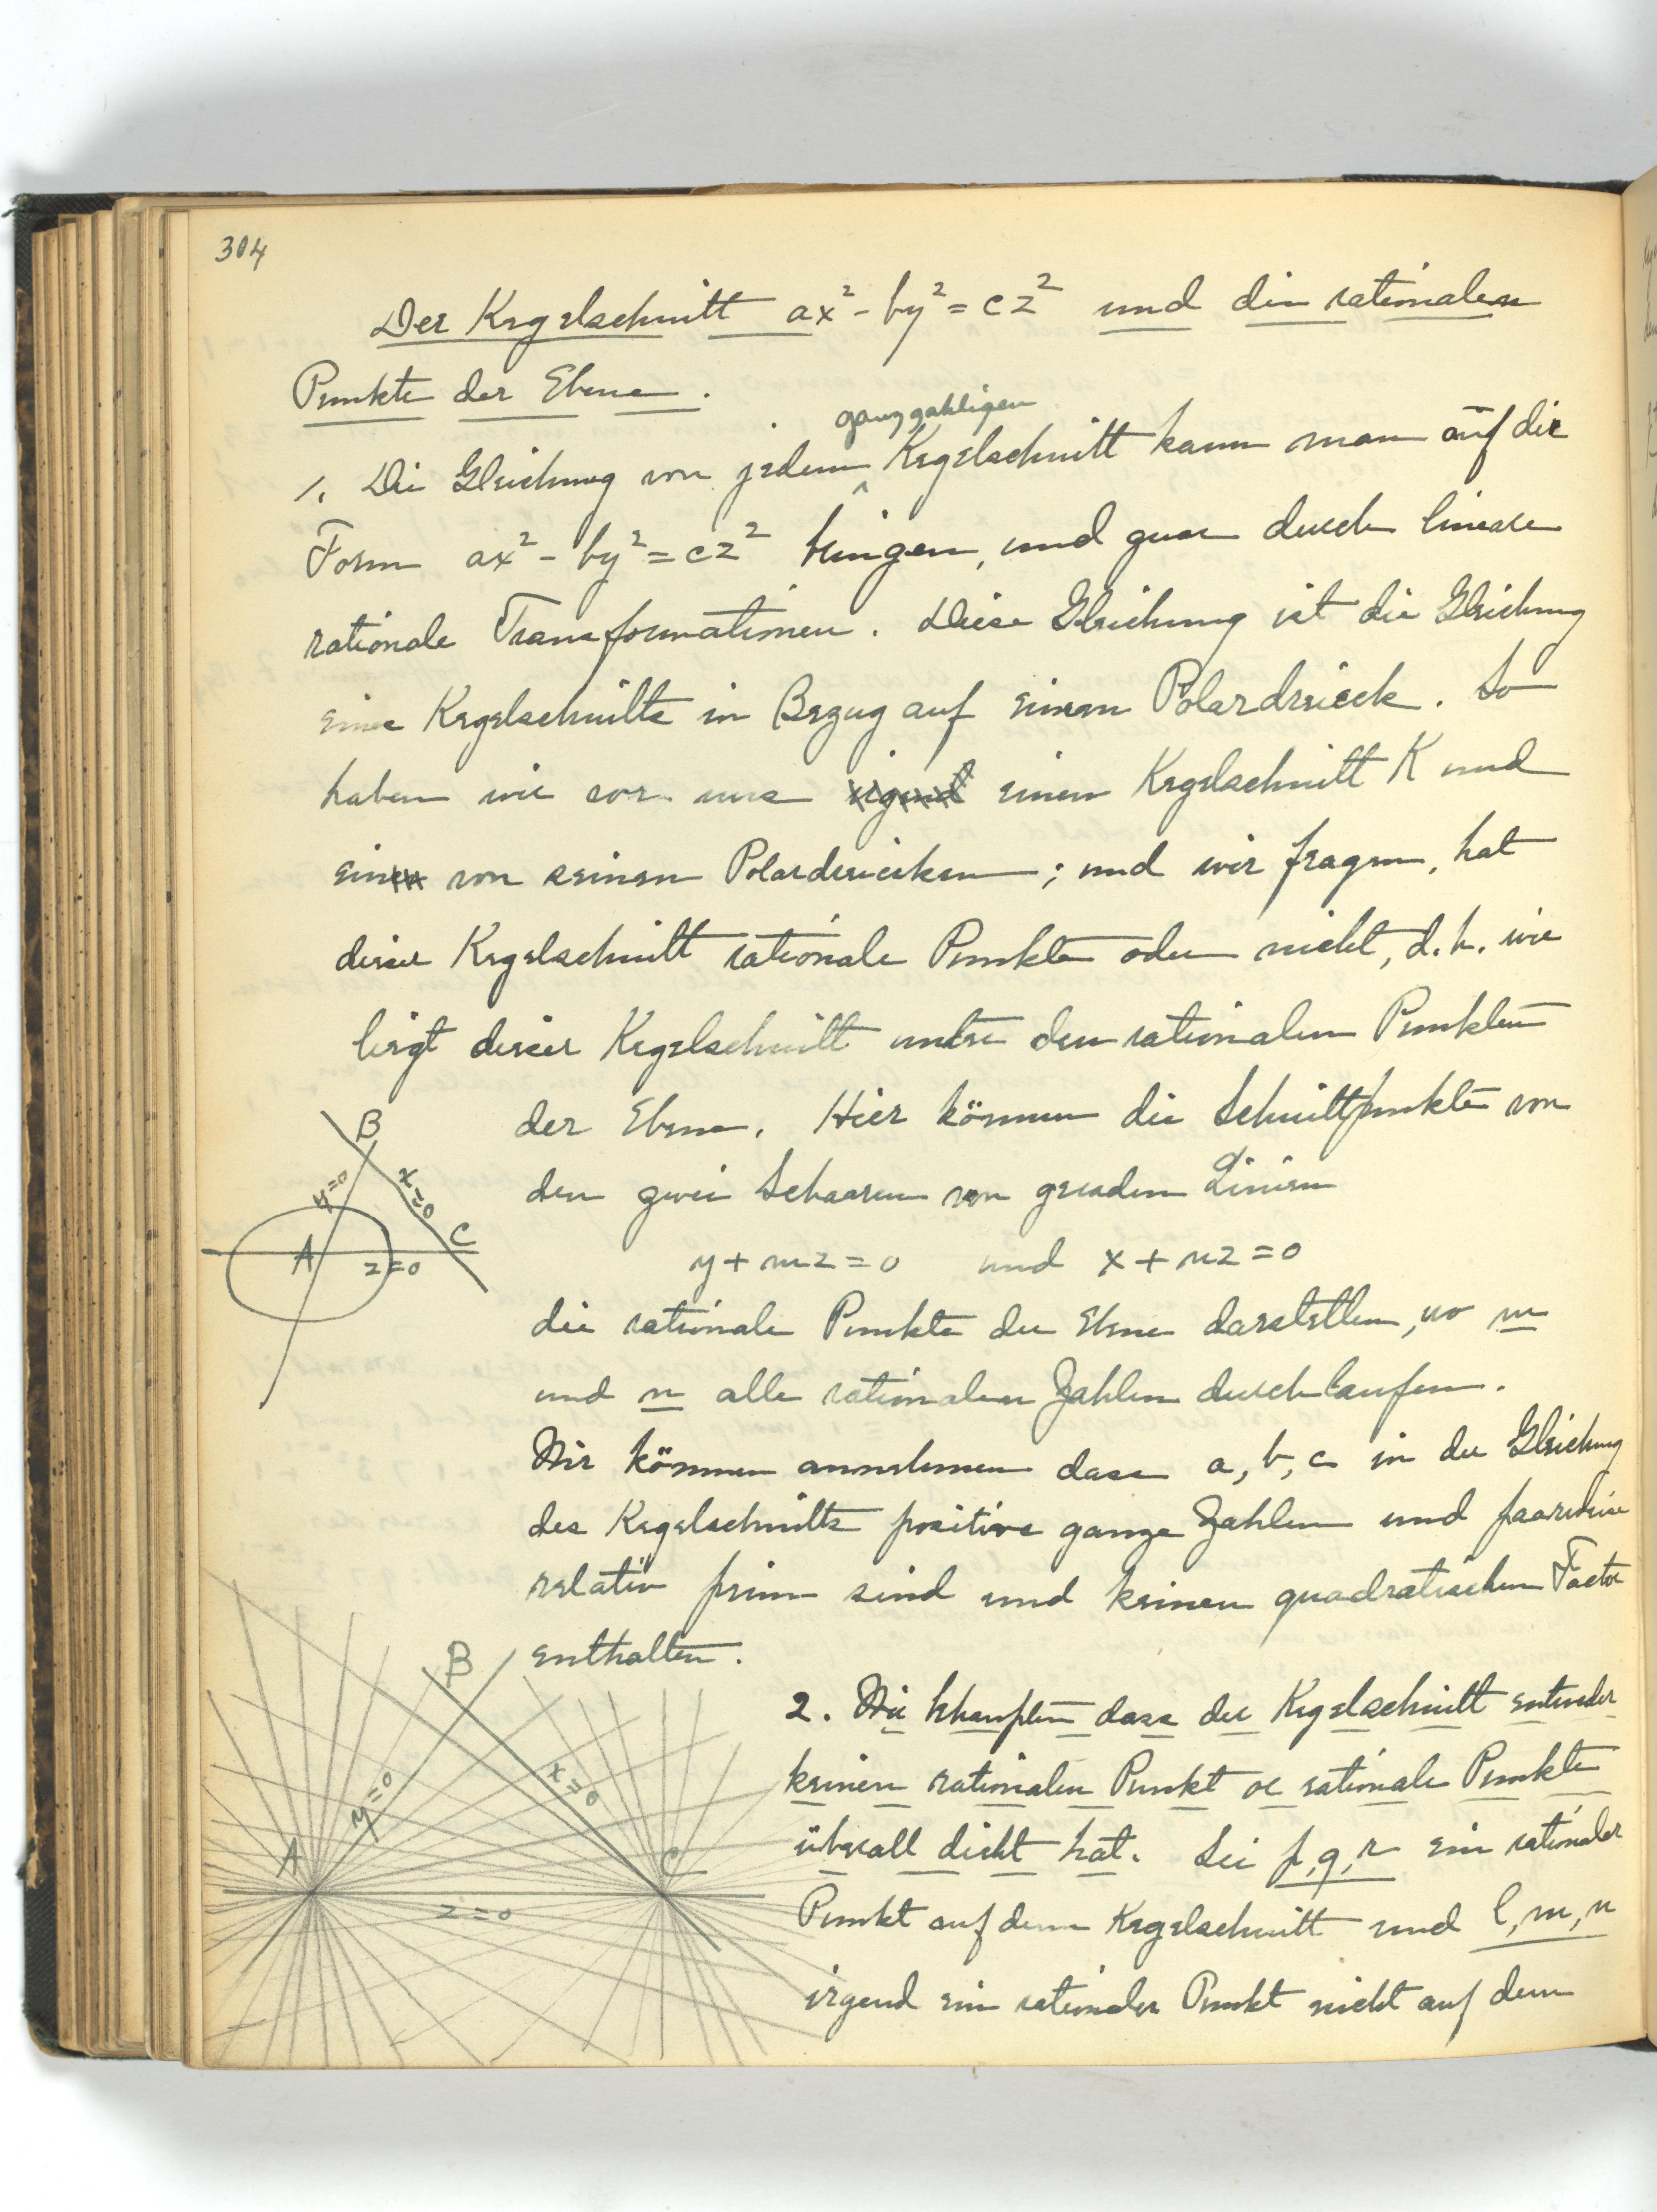 304
Der Kegelschnitt ax² - by² = cz² und die rationalen
Punkte der Ebene.
ganzzahligen
1. Die Gleichung von jedem ^ Kegelschnitt kann man auf die
Form ax² - by² = cz² bringen, und zwar durch lineare
rationale Transformationen. Diese Gleichung ist die Gleichung
eines Kegelschnitts in Bezug auf einem Polardreieck. So
haben wir vor uns irgend einen Kegelschnitt K und
einen von seinen Polardreiecken; und wir fragen, hat
dieser Kegelschnitt rationale Punkte oder nicht, d.h. wie
liegt dieser Kegelschnitt unter den rationalen Punkten
der Ebene. Hier können die Schnittpunkte von
den zwei Schaaren von geraden Linien
y + mz = 0 und x + nz = 0
die rationale Punkte der Ebene darstellen, wo m
und n alle rationalen Zahlen durchlaufen.
Wir können annehmen dass a, b, c in der Gleichung
des Kegelschnitts positive ganze Zahlen und paarweise
relativ prim sind und keinen quadratischen Factor
enthalten.
B
y=0
x=0
C
A
z=0
2. Wir behaupten dass der Kegelschnitt entweder
keinen rationalen Punkt oc rationale Punkte
überall dicht hat. Sei p, q, r ein rationaler
Punkt auf dem Kegelschnitt und l, m, n
irgend ein rationaler Punkt nicht auf dem
B
y=0
x=0
A
C
z=0